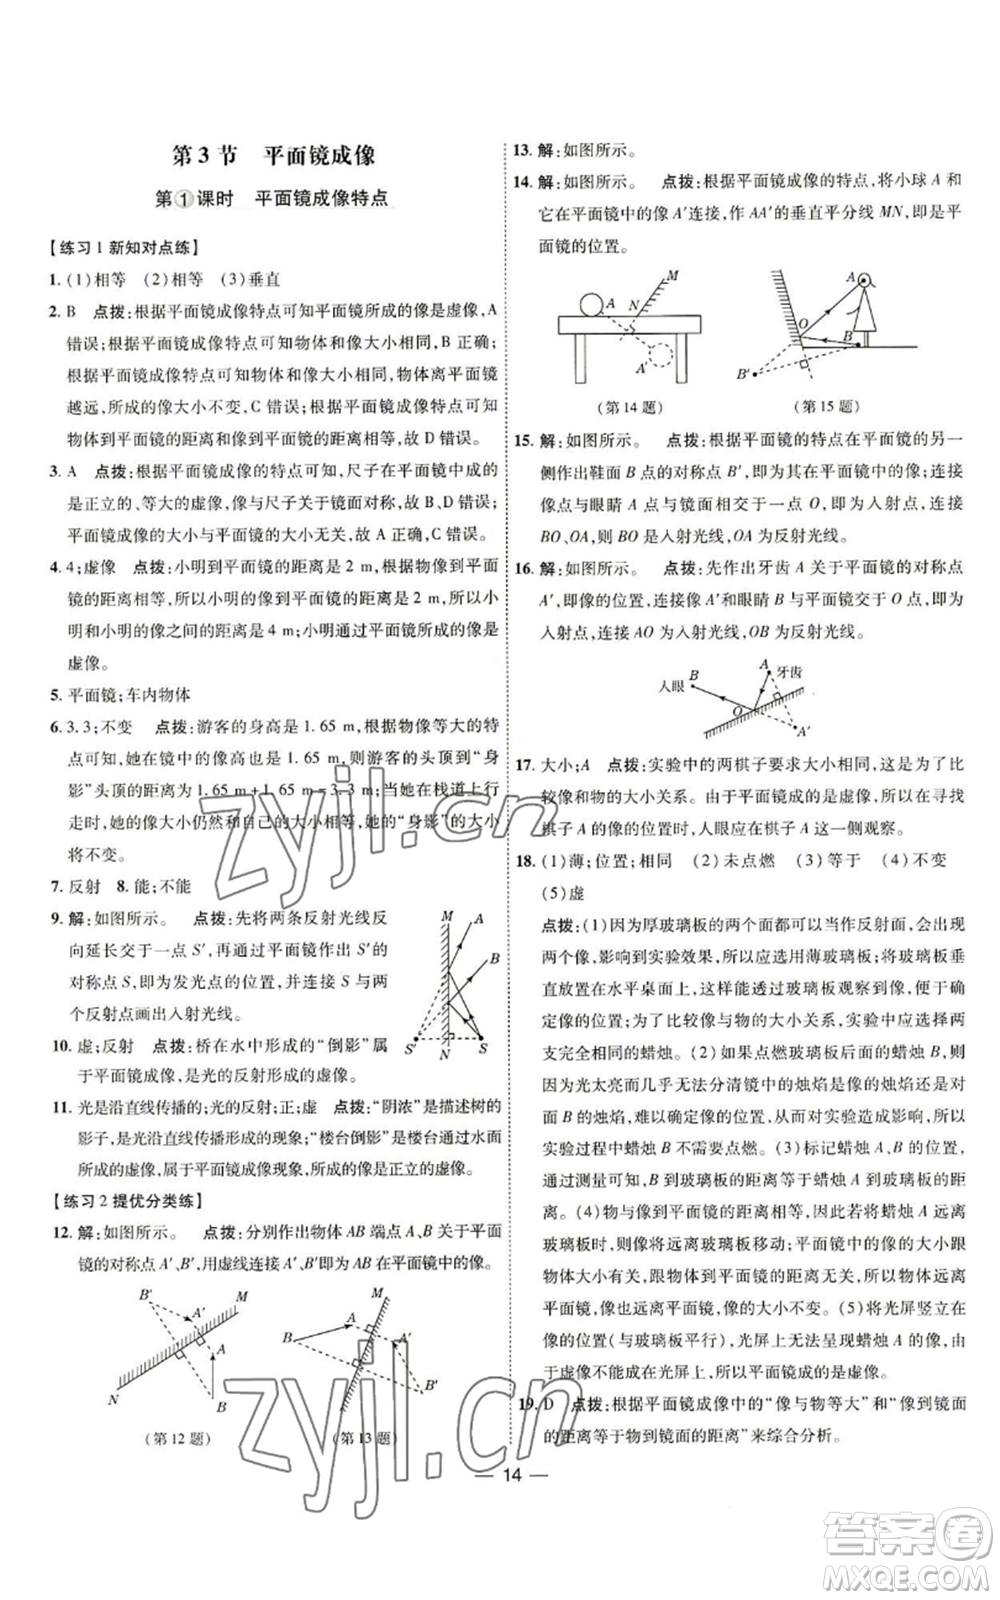 第3节 平面镜成像
第①课时 平面镜成像特点
【练习1 新知对点练】
1. (1)相等 (2)相等 (3)垂直
2. B 点拨:根据平面镜成像特点可知平面镜所成的像是虚像,A
错误;根据平面镜成像特点可知物体和像大小相同,B 正确;
根据平面镜成像特点可知物体和像的大小相同,物体离平面镜
越远,所成的像大小不变,C 错误;根据平面镜成像特点可知
物体到平面镜的距离和像到平面镜的距离相等,故 D 错误。
3. A 点拨:根据平面镜成像的特点可知,尺子在平面镜中成的
是正立的、等大的虚像,像与尺子关于镜面对称,故 B、D 错误;
平面镜成像的大小与平面镜的大小无关,故 A 正确,C 错误。
4. 4;虚像 点拨:小明到平面镜的距离是 2 m,所以小明的像到
平面镜的距离也是 2 m,所以小
明和小明的像之间的距离是 4 m;小明通过平面镜所成的像是
虚像。
5. 平面镜;车内物体
6. 3.3;不变 点拨:游客的身高是 1. 65 m,根据物像等大的特
点可知,她在镜中的像高也是 1. 65 m,所以游客的头顶到“身
影”头顶的距离是 1. 65 m+1. 65 m=3. 3 m;当她在栈道上行
走时,她的像大小仍然和自己的大小相等,她的“身影”的大小
将不变。
7. 反射 8. 能;不能
9. 解:如图所示。 点拨:先将两条反射光线反
向延长交于一点 S′,再通过平面镜作出 S′的
对称点 S,即为发光点的位置,并连接 S 与两
个反射点画出入射光线。
M
A
B
S′
N
S
10. 虚;反射 点拨:桥在水中形成的“倒影”属
于平面镜成像,是光的反射形成的虚像。
11. 光是沿直线传播的;光的反射;正;虚 点拨:“阴浓”是描述树的
影子,是光沿直线传播形成的现象;“楼台倒影”是通过水面
所成的虚像,属于平面镜成像现象,所成的像是正立的虚像。
【练习2 提优分类练】
12. 解:如图所示。 点拨:分别作出物体 AB 端点 A、B 关于平面
镜的对称点 A′、B′,用虚线连接 A′、B′即为 AB 在平面镜中的像。
B′
A′
M
A
N
B
(第 12 题)
M
A
B
A′
B′
N
(第 13 题)
13. 解:如图所示。
14. 解:如图所示。 点拨:根据平面镜成像的特点,将小球 A 和
它在平面镜中的像 A′连接,作 AA′的垂直平分线 MN,即是平
面镜的位置。
M
A
N
A′
(第 14 题)
A
O
B
B′
(第 15 题)
15. 解:如图所示。 点拨:根据平面镜的特点在平面镜的另一
侧作出鞋面 B 点的对称点 B′,即为其在平面镜中的像;连接
像点与眼睛 A 点与镜面相交于一点 O,即为入射点,连接
BO、OA,则 BO 是入射光线,OA 是反射光线。
16. 解:如图所示。 点拨:先作出牙齿 A 关于平面镜的对称点
A′,即像的位置,连接 A′和眼睛 B 与平面镜交于 O 点,即为
入射点,连接 AO 为入射光线,OB 为反射光线。
人眼
B
A
牙齿
O
A′
17. 大小;A 点拨:实验中的两棋子要求大小相同,这是为了比
较像和物的大小关系。由于平面镜成的是虚像,所以在寻找
棋子 A 的像的位置时,人眼应在棋子 A 这一侧观察。
18. (1)薄;位置;相同 (2)未点燃 (3)等于 (4)不变
(5)虚
点拨:(1)因为厚玻璃板的两个面都可以当作反射面,会出现
两个像,影响到实验效果,所以应选用薄玻璃板;将玻璃板竖
直放置在水平桌面上,这样能够通过玻璃板观察到像,便于确
定像的位置;为了比较像与物的大小关系,实验中应选择两
支完全相同的蜡烛。(2)如果点燃玻璃板后面的蜡烛 B,会
因为光太亮而几乎无法分清镜中的烛焰是 A 的烛焰还是对
面 B 的烛焰,难以确定像的位置,从而对实验造成影响,所以
实验过程中蜡烛 B 不需要点燃。(3)标记蜡烛 A、B 的位置,
通过测量可知,蜡烛 A 到玻璃板的距离等于蜡烛 B 到玻璃板的距
离。(4)物与像到平面镜的距离相等,若将蜡烛 A 远离
玻璃板时,则像会向远离玻璃板移动;平面镜中像的大小跟
物体大小有关,跟物体到平面镜的距离无关,所以物体远离
平面镜,像也远离平面镜,像的大小不变。(5)将光屏竖立在
像的位置(与玻璃板平行),光屏上无法呈现蜡烛 A 的像,由
于虚像不能成在光屏上,所以平面镜成的是虚像。
19. D 点拨:根据平面镜成像中的“像与物等大”和“像到镜面
的距离等于物到镜面的距离”来综合分析。
14
zyjl.cn
zyjl.cn
答案圈
MXQE.COM